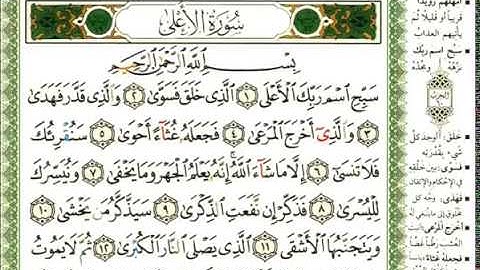 سُورَةُ الأَعْلَى
بِسْمِ ٱللَّهِ ٱلرَّحْمَٰنِ ٱلرَّحِيمِ
سَبِّحِ ٱسْمَ رَبِّكَ ٱلْأَعْلَى ١ ٱلَّذِى خَلَقَ فَسَوَّىٰ ٢ وَٱلَّذِى قَدَّرَ فَهَدَىٰ
٣ وَٱلَّذِىٓ أَخْرَجَ ٱلْمَرْعَىٰ ٤ فَجَعَلَهُۥ غُثَآءً أَحْوَىٰ ٥ سَنُقْرِئُكَ
فَلَا تَنسَىٰٓ ٦ إِلَّا مَا شَآءَ ٱللَّهُ ۚ إِنَّهُۥ يَعْلَمُ ٱلْجَهْرَ وَمَا يَخْفَىٰ ٧ وَنُيَسِّرُكَ
لِلْيُسْرَىٰ ٨ فَذَكِّرْ إِن نَّفَعَتِ ٱلذِّكْرَىٰ ٩ سَيَذَّكَّرُ مَن يَخْشَىٰ ١٠
وَيَتَجَنَّبُهَا ٱلْأَشْقَى ١١ ٱلَّذِى يَصْلَى ٱلنَّارَ ٱلْكُبْرَىٰ ١٢ ثُمَّ لَا يَمُوتُ
قريباً أو قليلاً ثم
يأتيهم العذاب
سبّح اسم ربك
نزّهه ومجّده
خلق: أوجد كل
شيء بقدرته
فسوّى: بين خلقه
في الإحكام والإتقان
فهدى: وجه كل
أخرج المرعى
فجعله غثاء